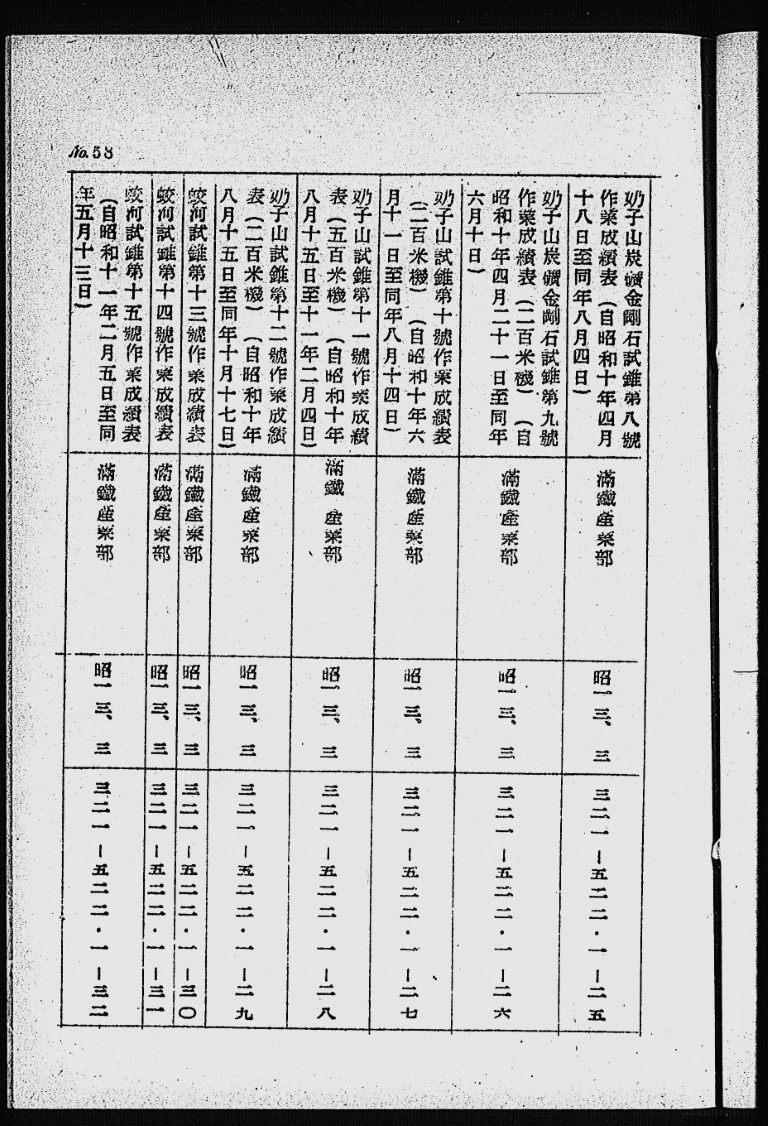 No. 58
奶子山炭礦金剛石試錐第八號
作業成績表（自昭和十年四月
十八日至同年八月四日）
滿鐵產業部
昭一三、三
三二一―五二二・一―二五
奶子山炭礦金剛石試錐第九號
作業成績表（二百米機）（自
昭和十年四月二十一日至同年
六月十日）
滿鐵產業部
昭一三、三
三二一―五二二・一―二六
奶子山試錐第十號作業成績表
（二百米機）（自昭和十年六
月十一日至同年八月十四日）
滿鐵產業部
昭一三、三
三二一―五二二・一―二七
奶子山試錐第十一號作業成績
表（五百米機）（自昭和十年
八月十五日至十一年二月四日）
滿鐵產業部
昭一三、三
三二一―五二二・一―二八
奶子山試錐第十二號作業成績
表（二百米機）（自昭和十年
八月十五日至同年十月十七日）
滿鐵產業部
昭一三、三
三二一―五二二・一―二九
蛟河試錐第十三號作業成績表
滿鐵產業部
昭一三、三
三二一―五二二・一―三〇
蛟河試錐第十四號作業成績表
滿鐵產業部
昭一三、三
三二一―五二二・一―三一
蛟河試錐第十五號作業成績表
（自昭和十一年二月五日至同
年五月十三日）
滿鐵產業部
昭一三、三
三二一―五二二・一―三二